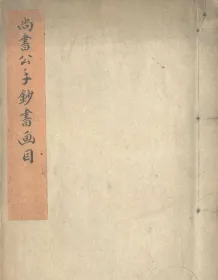 尚書公手鈔書画目